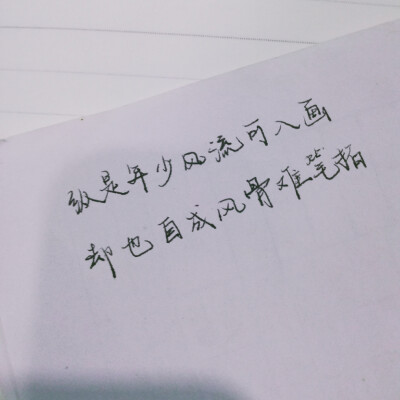 纵是年少风流可入画
却也自成风骨难笔拓